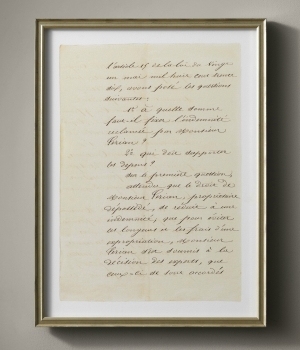 l'article 15 de la loi du Vingt
un mai mil huit cent trente
six, avons posé les questions
suivantes:
1° à quelle somme
faut-il fixer l'indemnité
réclamée par Monsieur
?
2° que doit supporter
les dépens?
Sur la première question,
attendu que le droit de
Monsieur , propriétaire
dépossédé, se réduit à une
indemnité, que pour éviter
les longueurs et les frais d'une
expropriation, Monsieur
s'est soumis à la
décision des experts, que
ceux-ci de sont accordés